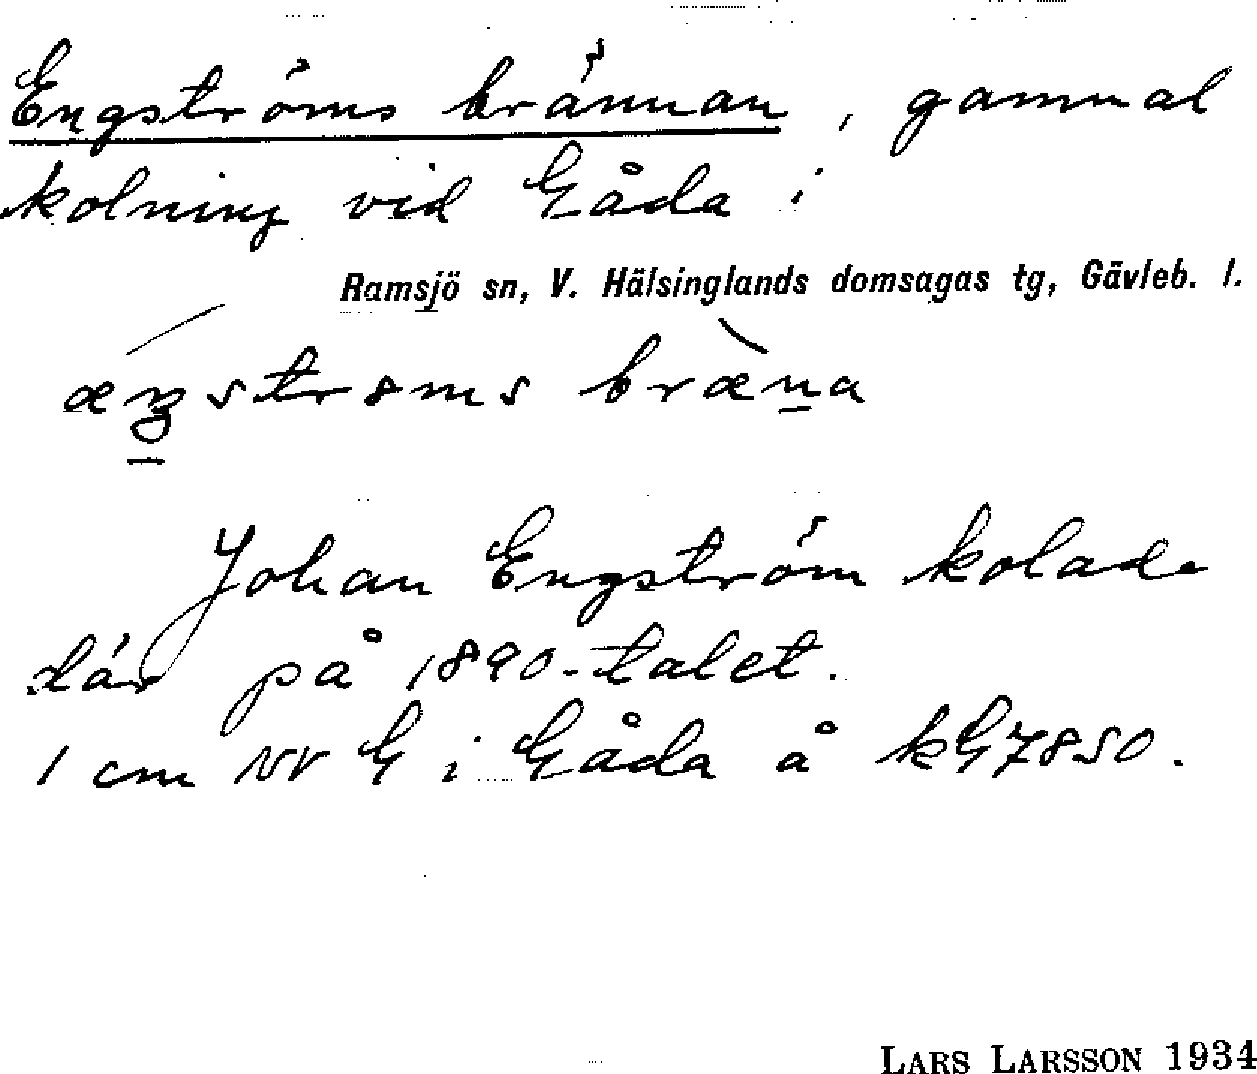 Engströms brännan, gammal
kolning vid Gåda i
Ramsjö sn, V. Hälsinglands domsagas tg, Gävleb. l.
bræna
Johan Engström kolade
där på 1890-talet.
1 cm NV G i Gåda å kG7850.
LARS LARSSON 1934